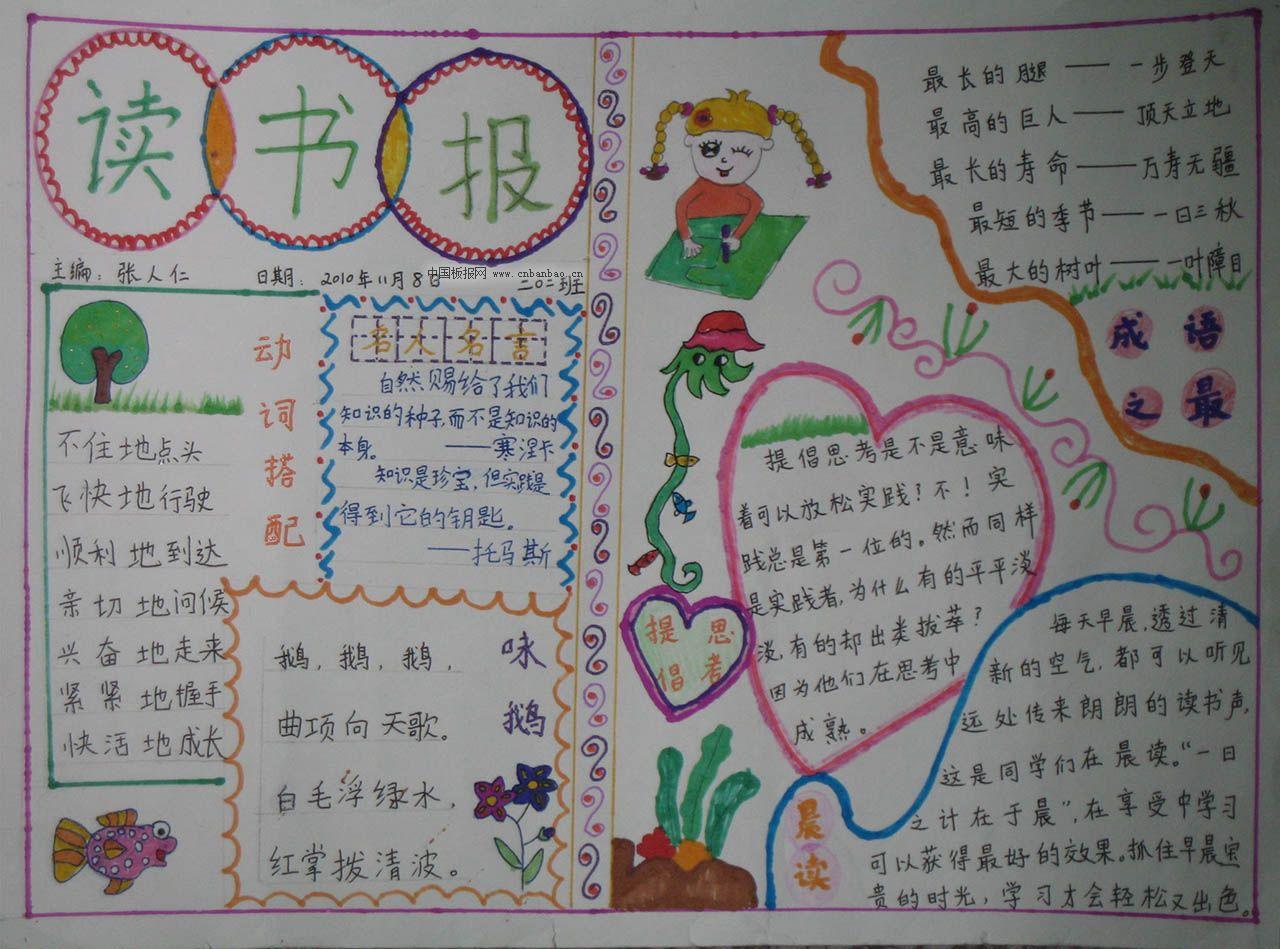 读书报
主编：张人仁 日期：2010年11月8日 二0二班
中国板报网 www.cnbanbao.cn
动词搭配
不住地点头
飞快地行驶
顺利地到达
亲切地问候
兴奋地走来
紧紧地握手
快活地成长
名人名言
自然赐给了我们
知识的种子,而不是知识的
本身。——塞涅卡
知识是珍宝,但实践是
得到它的钥匙。
——托马斯
咏鹅
鹅，鹅，鹅，
曲项向天歌。
白毛浮绿水，
红掌拨清波。
最长的腿——一步登天
最高的巨人——顶天立地
最长的寿命——万寿无疆
最短的季节——一日三秋
最大的树叶——一叶障目
成语
之最
提倡
思考
提倡思考是不是意味
着可以放松实践？不！实
践总是第一位的。然而同样
是实践者,为什么有的平平淡
淡,有的却出类拔萃？
因为他们在思考中
成熟。
晨读
每天早晨,透过清
新的空气,都可以听见
远处传来朗朗的读书声,
这是同学们在晨读。“一日
之计在于晨”,在享受中学习
可以获得最好的效果。抓住早晨宝
贵的时光，学习才会轻松又出色。